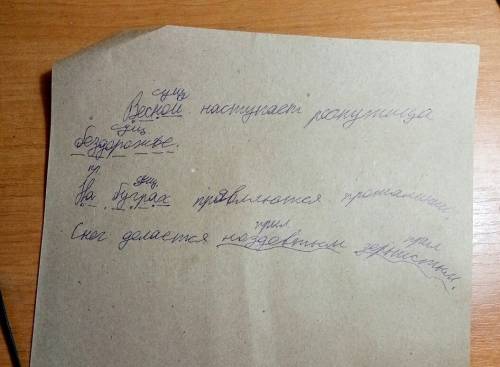 сущ
Весной наступает распутица
сущ
бездорожье.
пр сущ
На буграх проявляются проталины.
прил прил
Снег делается ноздеватым зернистым.